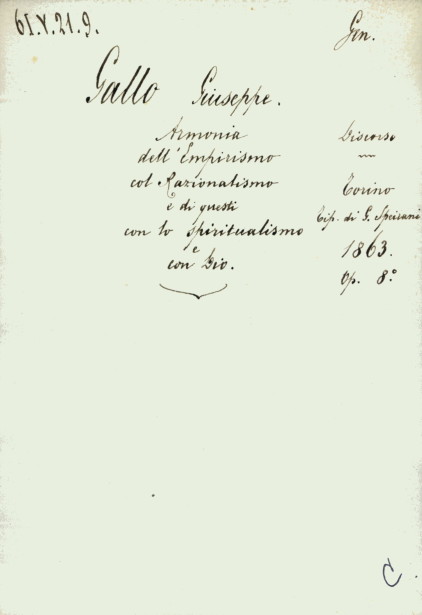 61.V.21.9.
Gen.
Gallo Giuseppe.
Armonia
dell'Empirismo
col Razionalismo
e di questi
con lo spiritualismo
e
con Dio.
Discorso
Torino
Tip. di G. Speirani
1863.
Op. 8.°
C